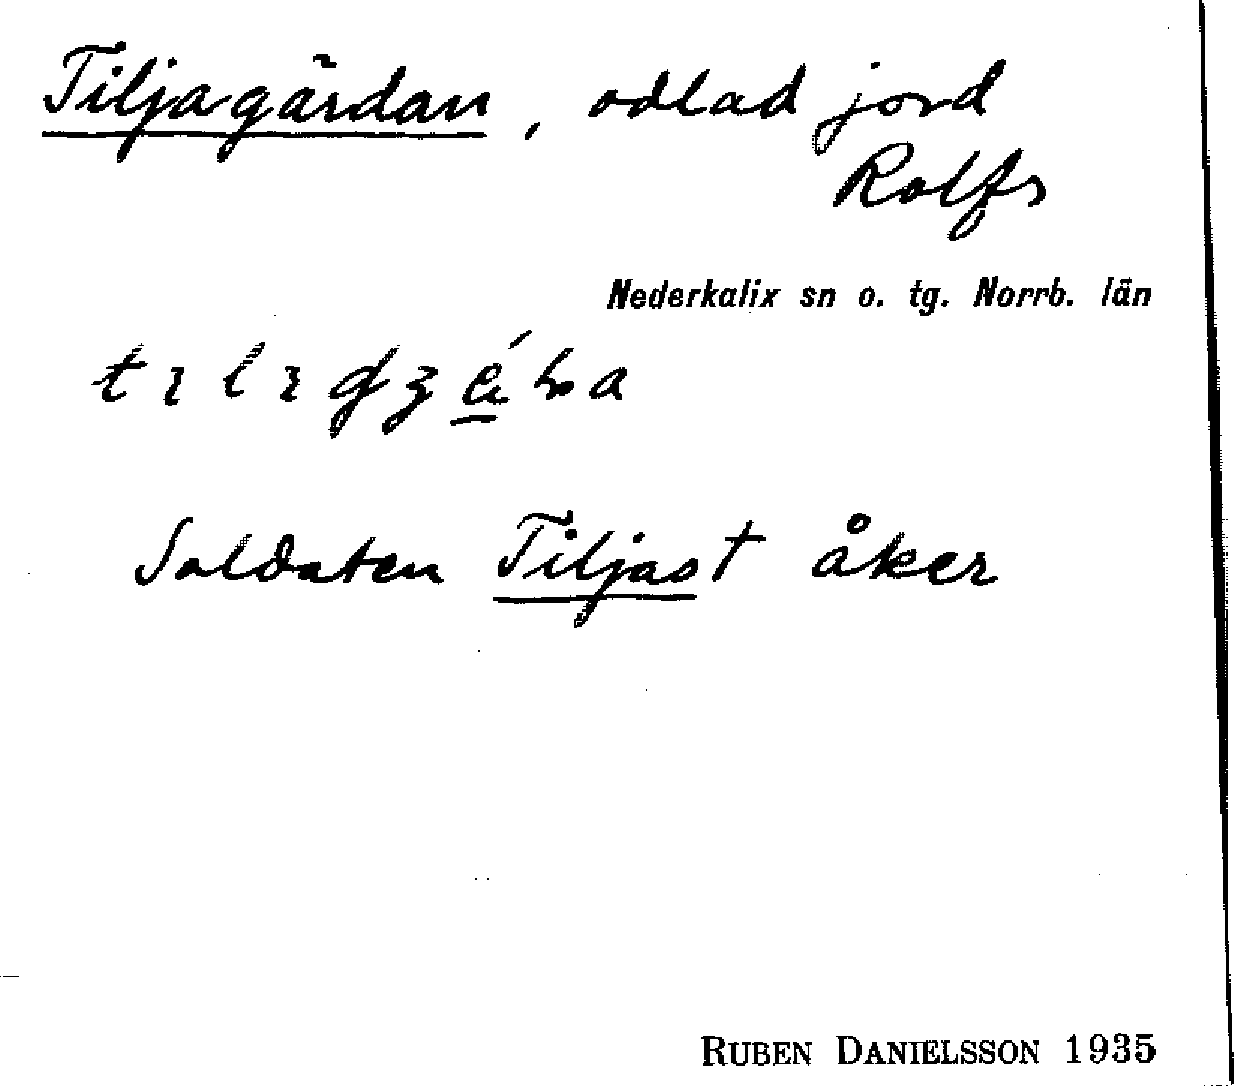 Tiljagärdan, odlad jord
Rolfs
Nederkalix sn o. tg. Norrb. län
Soldaten Tiljas† åker
RUBEN DANIELSSON 1935